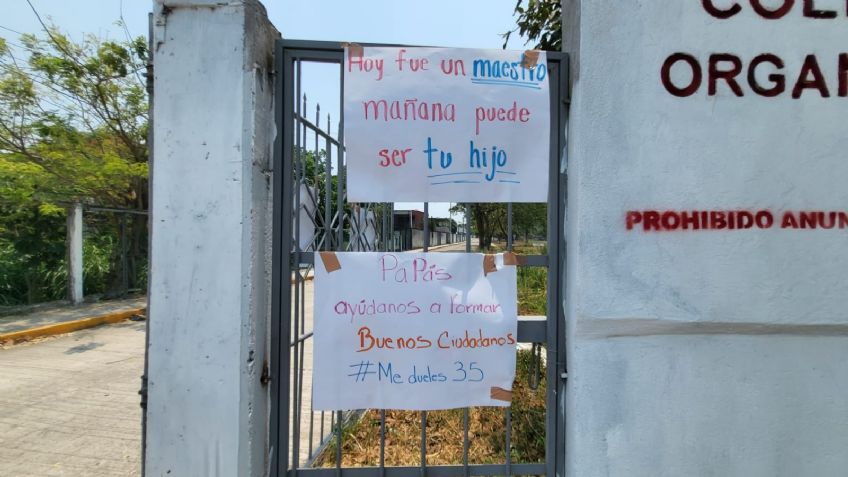 Hoy fue un maestro
mañana puede
ser tu hijo
PaPás
ayúdanos a formar
Buenos Ciudadanos
#Me dueles 35
ORGAN
PROHIBIDO ANUN